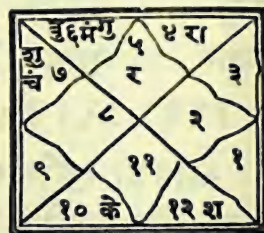 बु ६ मं गु
५
र
४ रा
शु
चं ७
३
८
२
९
११
१
१० के
१२ श